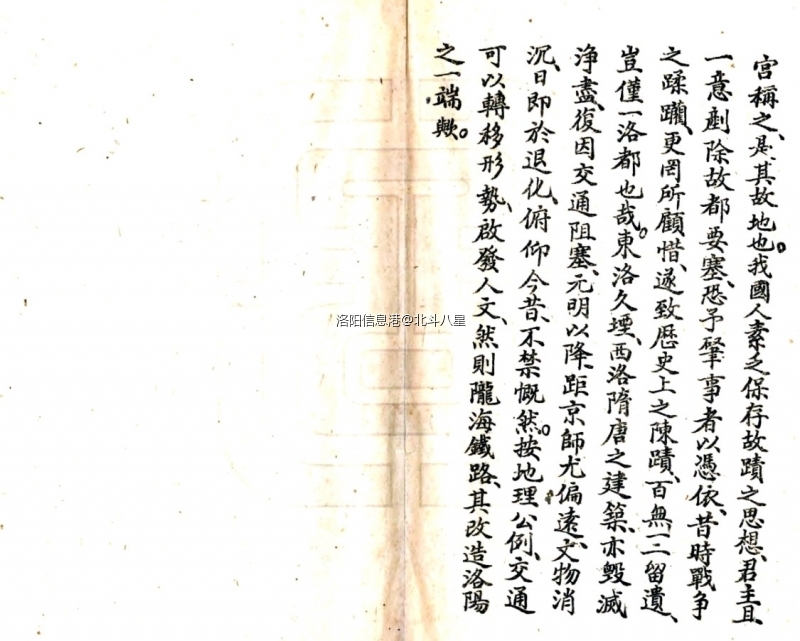 宮稱之、是其故地也。我國人素乏保存故蹟之思想、君主且
一意剷除故都要塞、恐予肇事者以憑依、昔時戰爭
之蹂躪、更罔所顧惜、遂致歷史上之陳蹟、百無一二留遺、
豈僅一洛都也哉。東洛久堙、西洛隋唐之建築、亦毀滅
淨盡、復因交通阻塞、元明以降、距京師尤偏遠、文物消
沉、日即於退化、俯仰今昔、不禁慨然。按地理公例、交通
可以轉移形勢、啟發人文、然則隴海鐵路、其改造洛陽
之一端歟。
洛阳信息港@北斗八星